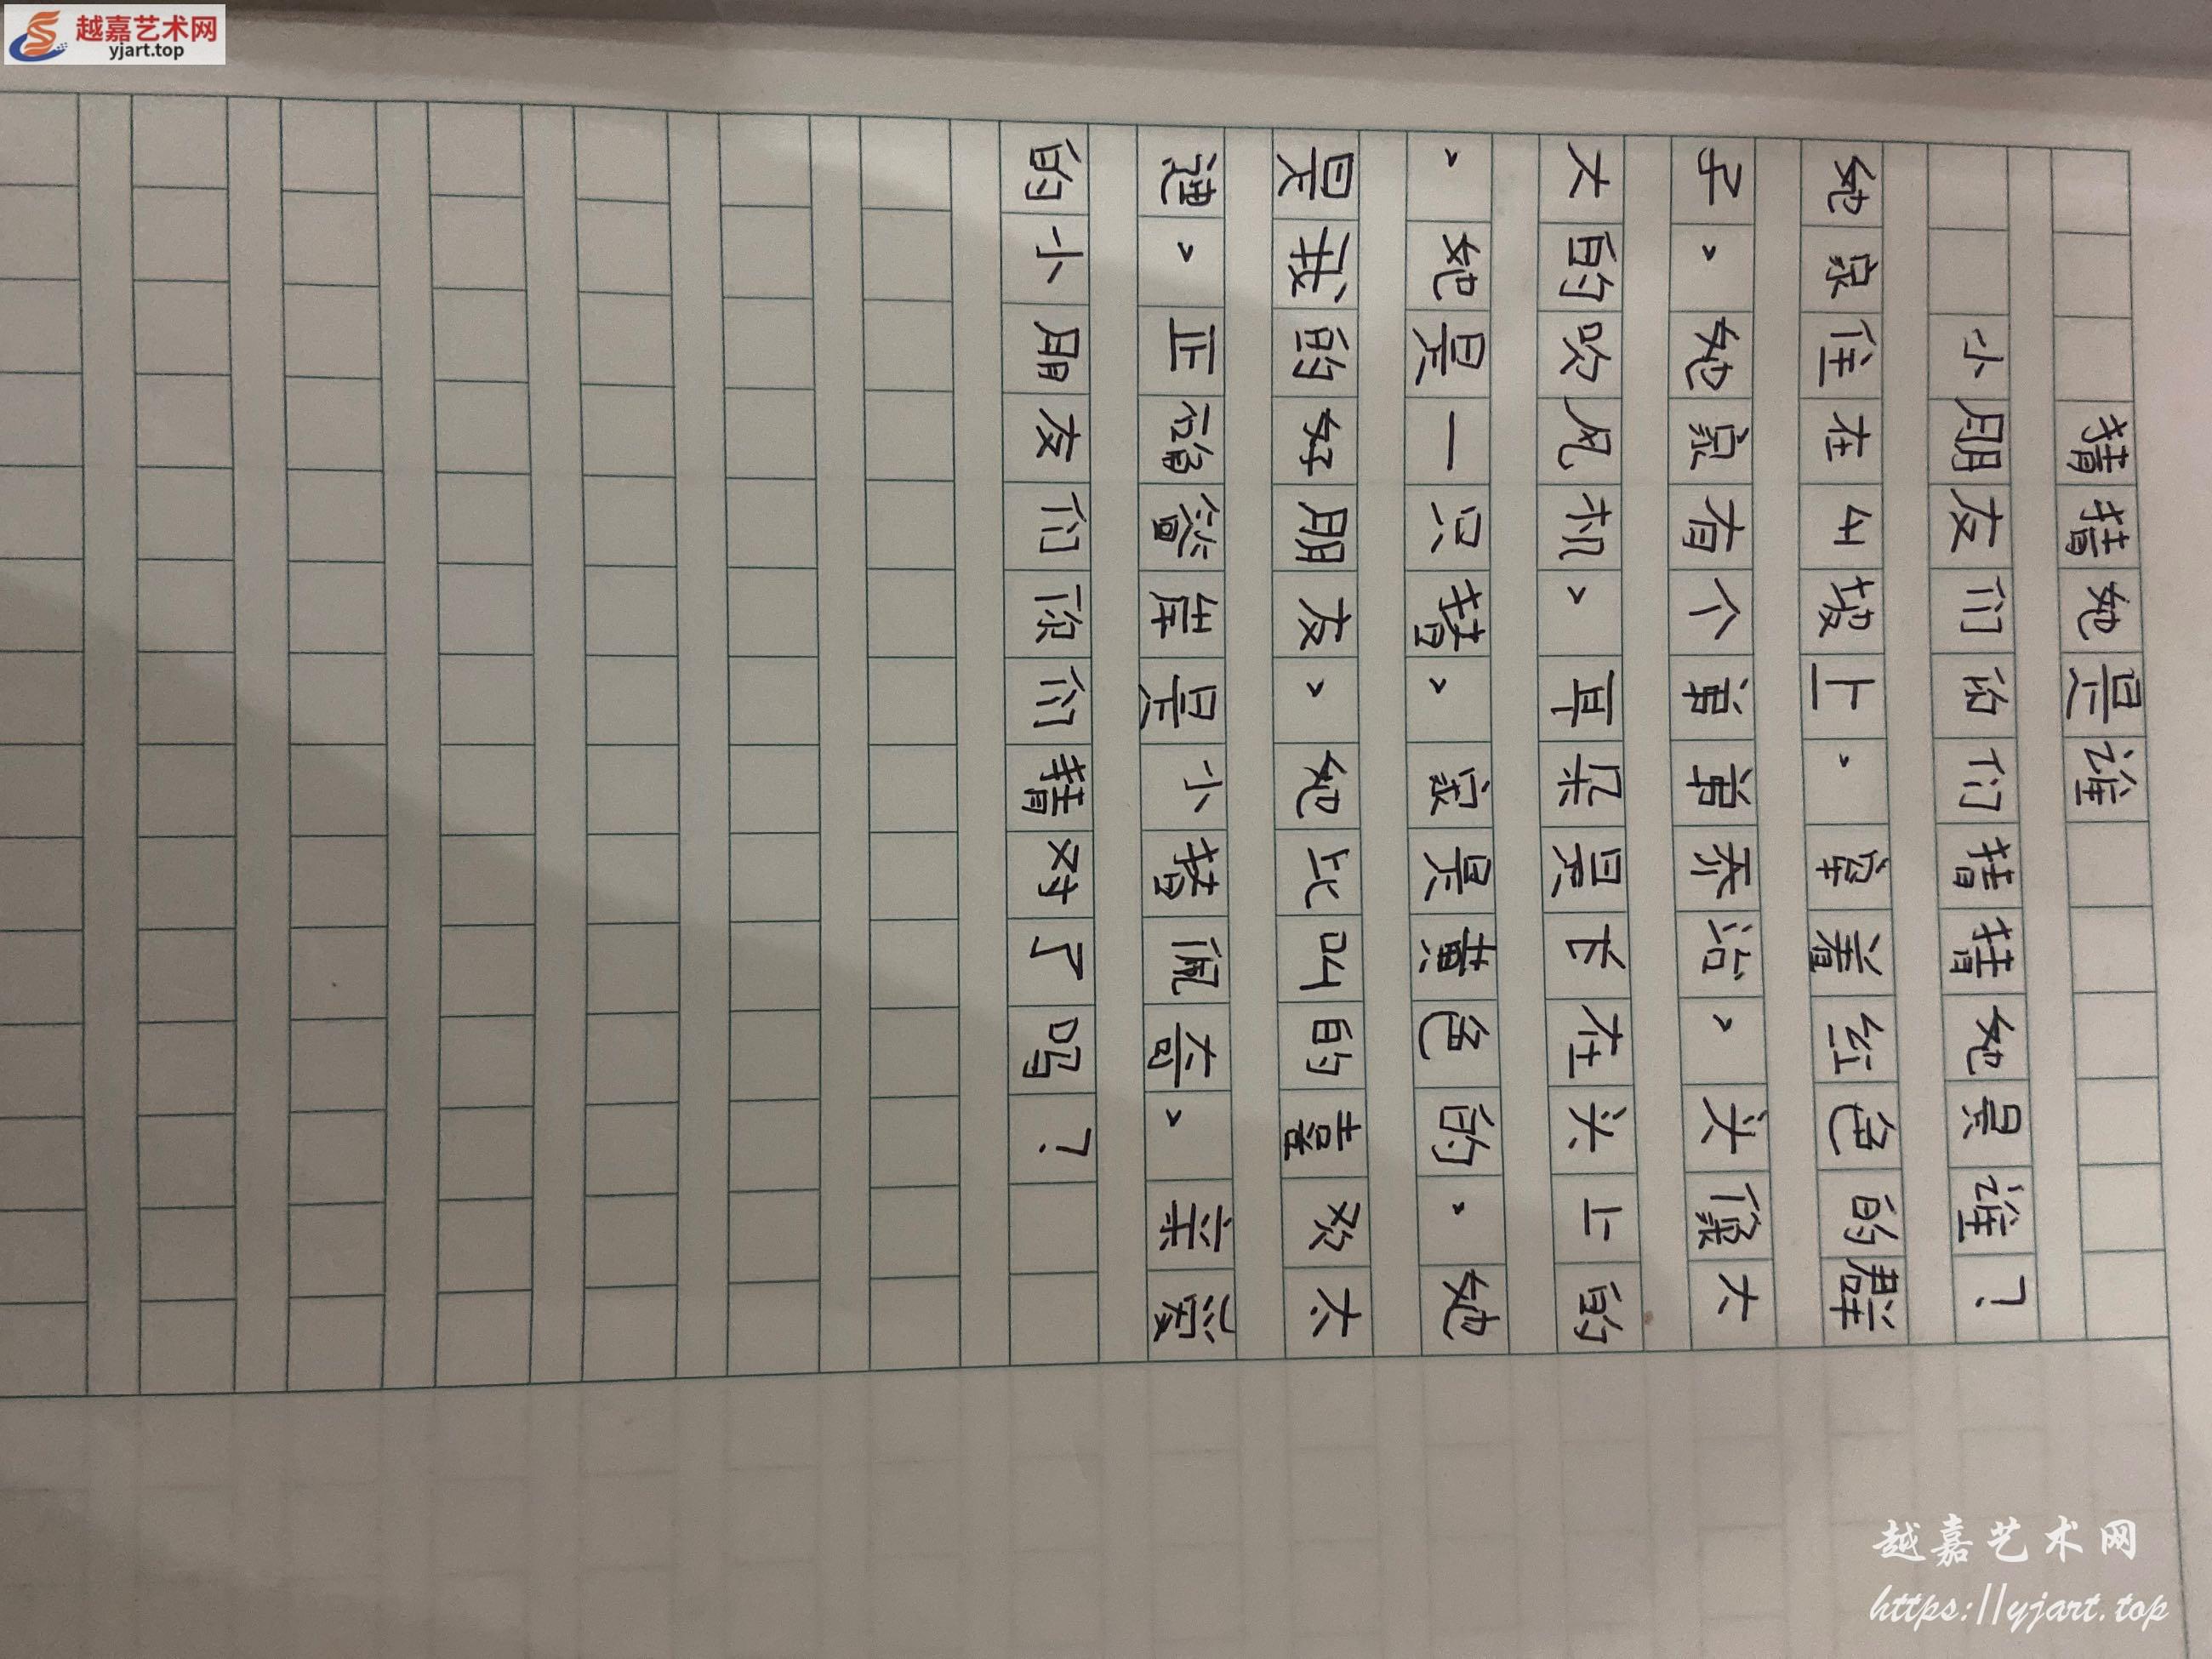 越嘉艺术网
yjart.top
猜猜她是谁
小朋友们你们猜猜她是谁?
她家住在山坡上。穿着红色的裙
子,她家有个弟弟乔治,头像大
大的吹风机,耳朵是长在头上的
,她是一只猪,家是黄色的。她
是我的好朋友,她比叫的喜欢太
迪,正确答案是小猪佩奇,亲爱
的小朋友们你们猜对了吗?
越嘉艺术网
https://yjart.top